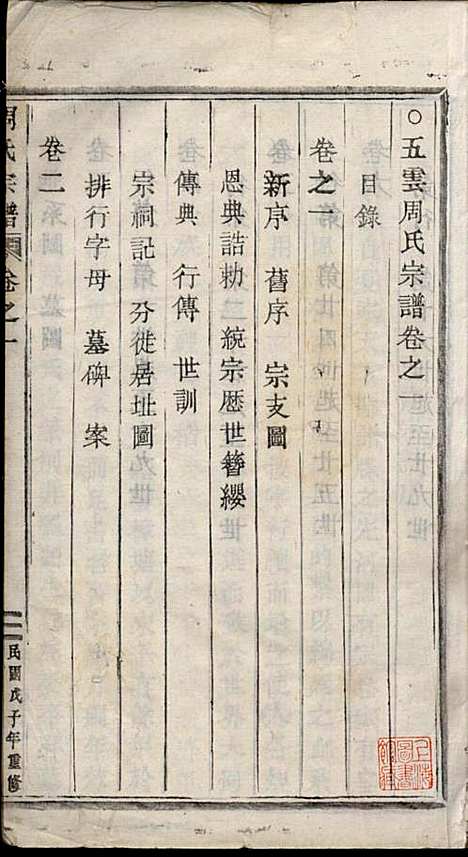 ○五雲周氏宗譜卷之一
目錄
卷之一
新序 舊序 宗支圖
恩典誥勅 統宗歷世簪纓
傳典 行傳 世訓
宗祠記 分徙居址圖
排行字母 墓碑 案
卷二
周氏宗譜 卷之一
民國戊子年重修
上海圖書館藏